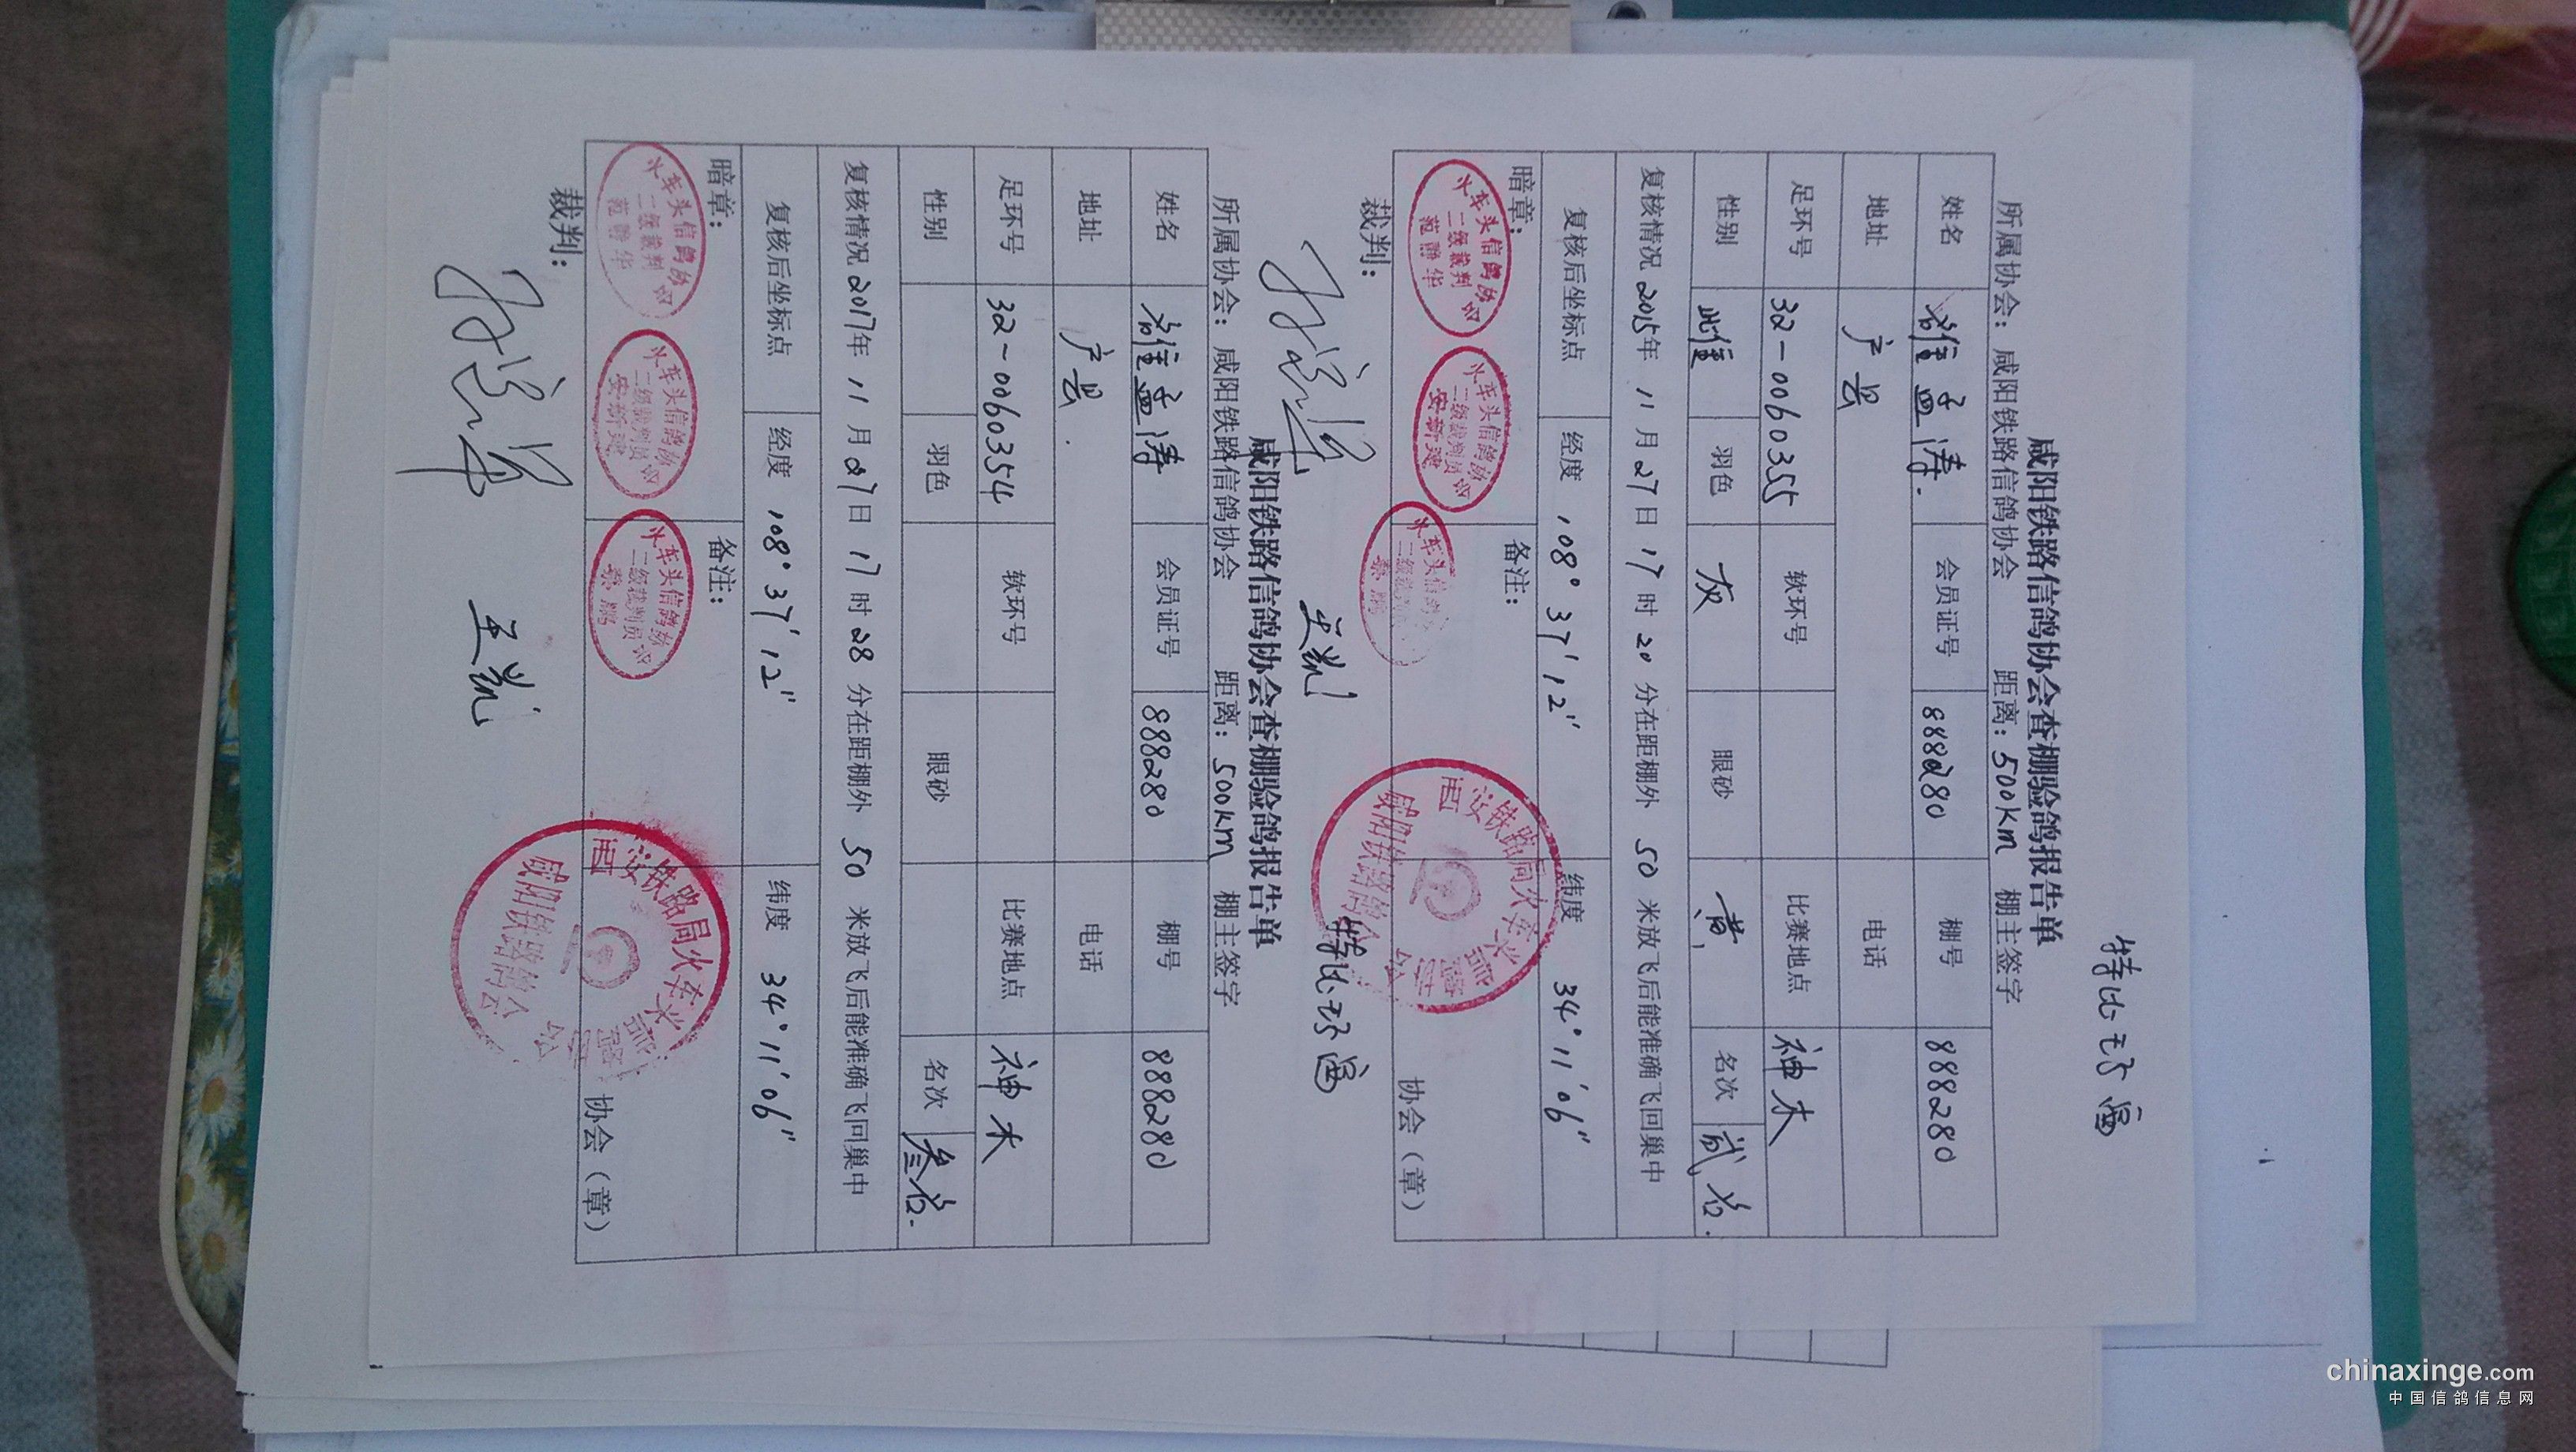 特比环鸽
咸阳铁路信鸽协会查棚验鸽报告单
所属协会：咸阳铁路信鸽协会 距离：500km 棚主签字
姓名 会员证号 888280 棚号 888280
地址 户县 电话
足环号 32-0060355 软环号 比赛地点 神木
性别 羽色 灰 眼砂 黄 名次 贰名.
复核情况 2015年 11 月 27 日 17 时 20 分在距棚外 50 米放飞后能准确飞回巢中
复核后坐标点 经度 108° 37′ 12″ 纬度 34° 11′ 06″
暗章： 备注：
火车头信鸽协会 二级裁判
火车头信鸽协会 二级裁判员 安新建
火车头信鸽协
西安铁路局火车头
咸阳铁路鸽会
协会（章）
裁判： 王凯
咸阳铁路信鸽协会查棚验鸽报告单
所属协会：咸阳铁路信鸽协会 距离：500km 棚主签字
姓名 会员证号 888280 棚号 888280
地址 户县 电话
足环号 32-0060354 软环号 比赛地点 神木
性别 羽色 眼砂 名次 叁名.
复核情况 2017年 11 月 27 日 17 时 28 分在距棚外 50 米放飞后能准确飞回巢中
复核后坐标点 经度 108° 37′ 12″ 纬度 34° 11′ 06″
暗章： 备注：
火车头信鸽协 二级裁判
火车头信鸽协 二级裁判员 安新建
火车头信鸽协 二级裁判员
西安铁路局火车头
咸阳铁路鸽会
协会（章）
裁判： 王凯
chinaxinge.com
中国信鸽信息网